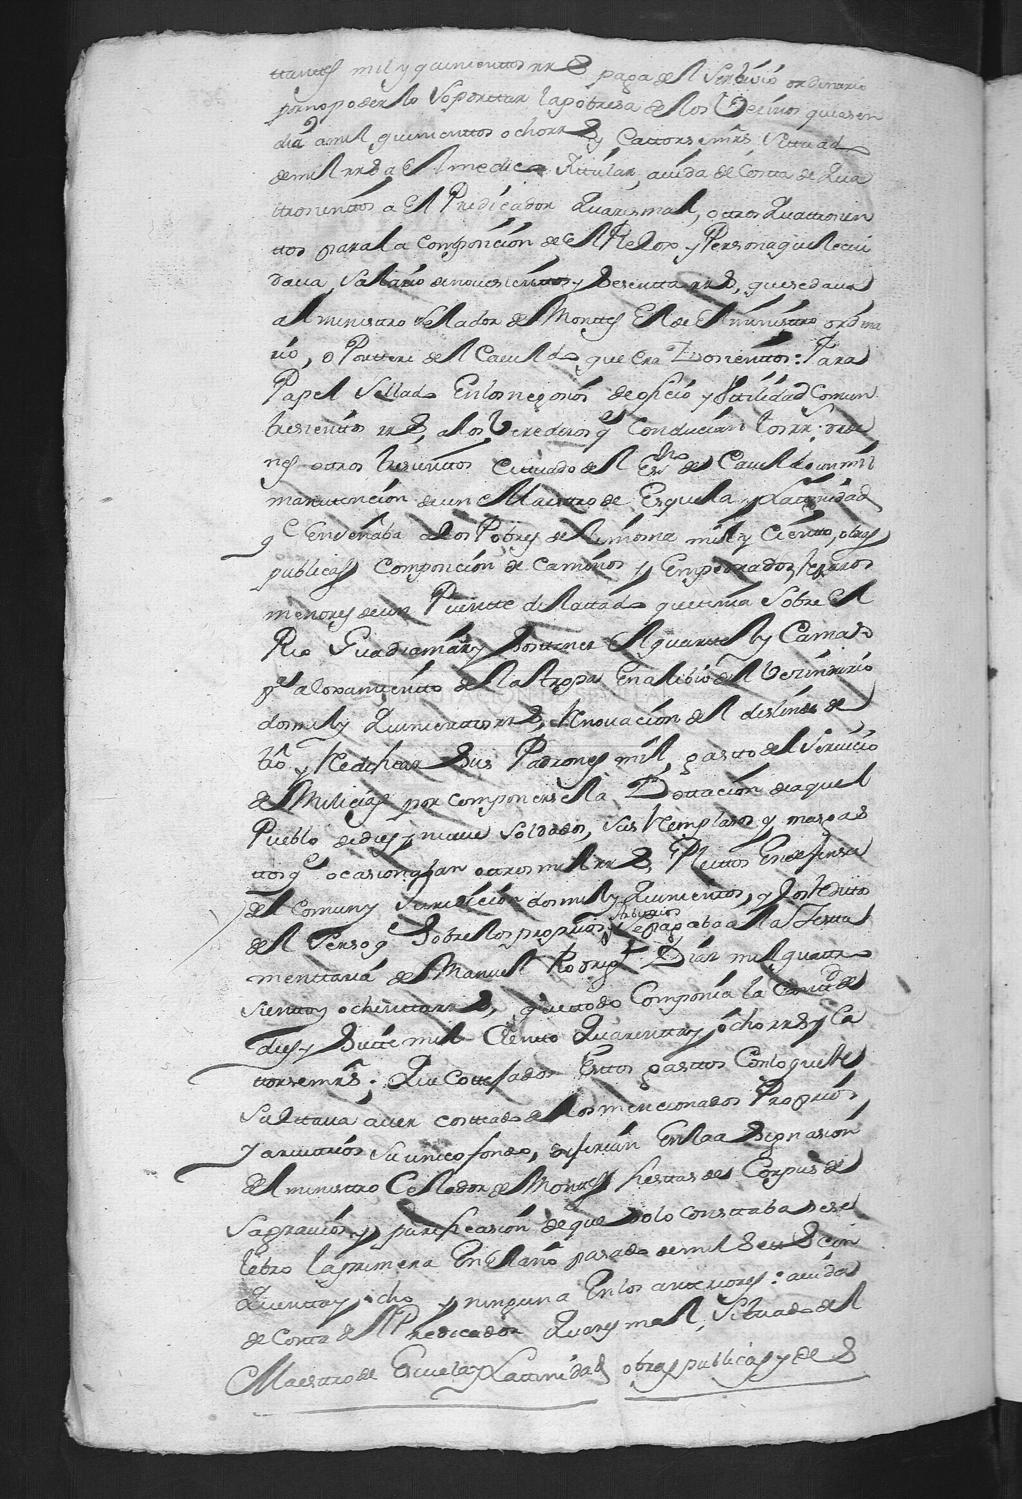 mil y quinienttos rr.s paga del Serbicio ordinario
por no poderlo Soporttar la pobresa de los Vecinos que asen
dia a mil quinienttos ocho rr.s y Cattorse mrs, Sittuado
de mil rr.s a El medico Titular, aiuda de Costa de Qua
ttrosienttos a El Predicador Quaresmal, ottros Quattrosien
ttos para la Composicion de El Relox, y Persona que le cui
daua, Salario de nouesienttos y Sesentta rr.s, que se daua
al ministro Selador de Monttes El de El ministro ordina
rio, o Porttero del Cauildo que era Dosienttos: Para
Papel Sellado En los negosios de oficio y Utilidad Comun
tresienttos rr.s, a los Verederos q.e Conducian las rr. orde
nes ottros tresienttos Cituado del Es.no de Cauildo un mil
manutencion de un Maestro de Esquela y Lattinidad
q.e Enseñaba a los Pobres de limosna mil y Ciento, obras
publicas Composicion de Caminos y Empedrados, reparos
menores de un Puentte dilattado que tenia Sobre El
Rio Guadiamar y Sosttener El quarttel y Camas
p.a aloxamientto de la tropa En alibio del Vezindario
dos mil y Quinienttos rr.s, Renouacion del deslinde de
tt.no y Redificar Sus Padrones mil, gastto del Seruicio
de Milicias por componerse la Dottacion de aquel
Pueblo de dies y nueue Soldados, Sus Remplasos y mas gas
ttos q.e ocasionaban ottros mil rr.s, Pleittos En defensa
del Comun y Jurisdicion dos mil y Quinienttos, y los reditos
del Senso q.e Sobre los propios y Arbitrios se pagaba a la Testa
menttaria de Manuel Rodrig.s Dias mil quattro
sienttos ochentta rr.s, que ttodo Componia la Canttd. de
dies y Siette mil Ciento Quarentta y ocho rr.s y Ca
ttorse mrs: Que Cottejados Esttos gasttos Con lo que Re
Sulttaua auer costteado de los mencionados Propios,
y arvitrios su unico fondo, diferian En la a Signasion
del ministro Celador de Monttes fiesttas de Corpus de
Sagrauios y purificasion de que Solo Consttaba Se se
lebro la primera En El año pasado de mil Settes cin
Quentta y ocho y ninguna En los antteriores: aiuda
de Costa del Predicador Quaresmal, Situado del
Maesttro de Escuela y Lattinidad obras publicas y de S